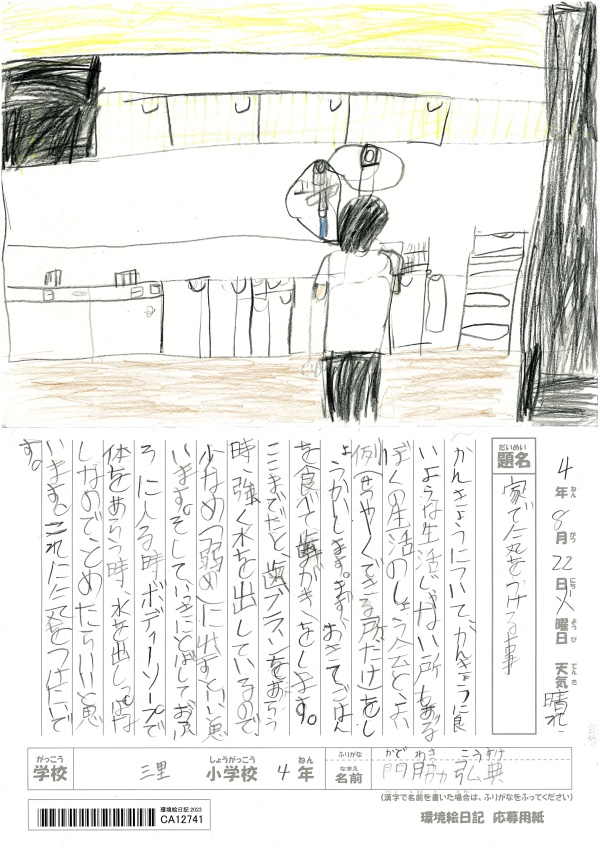 4年8月22日火曜日 天気晴れ
ねん がつ にち ようび てんき
だいめい
題名
家で気をつける事
かんきょうについて、かんきょうに良
いような生活じゃない所もある
ぼくの生活のしょう介とよい
例(せつやくできる所だけ)をし
ょうかいします。まず、おきてごはん
を食べて歯みがきをします。
ここまでだと、歯ブラシをあらう
時、強く水を出しているので
少なめ(弱め)に出すといい思
います。そして、いっきにとばしてお風
ろに入る時ボディーソープで
体をあらう時、水を出しっぱな
しなのでとめたらいいと思
います。これに気をつけたいで
す。
がっこう
学校
三里
しょうがっこう
小学校
4年
ねん
ふりがな
かど わき こうすけ
なまえ
名前
門脇 弘典
(漢字で名前を書いた場合は、ふりがなをふってください)
環境絵日記 2023
CA12741
環境絵日記 応募用紙